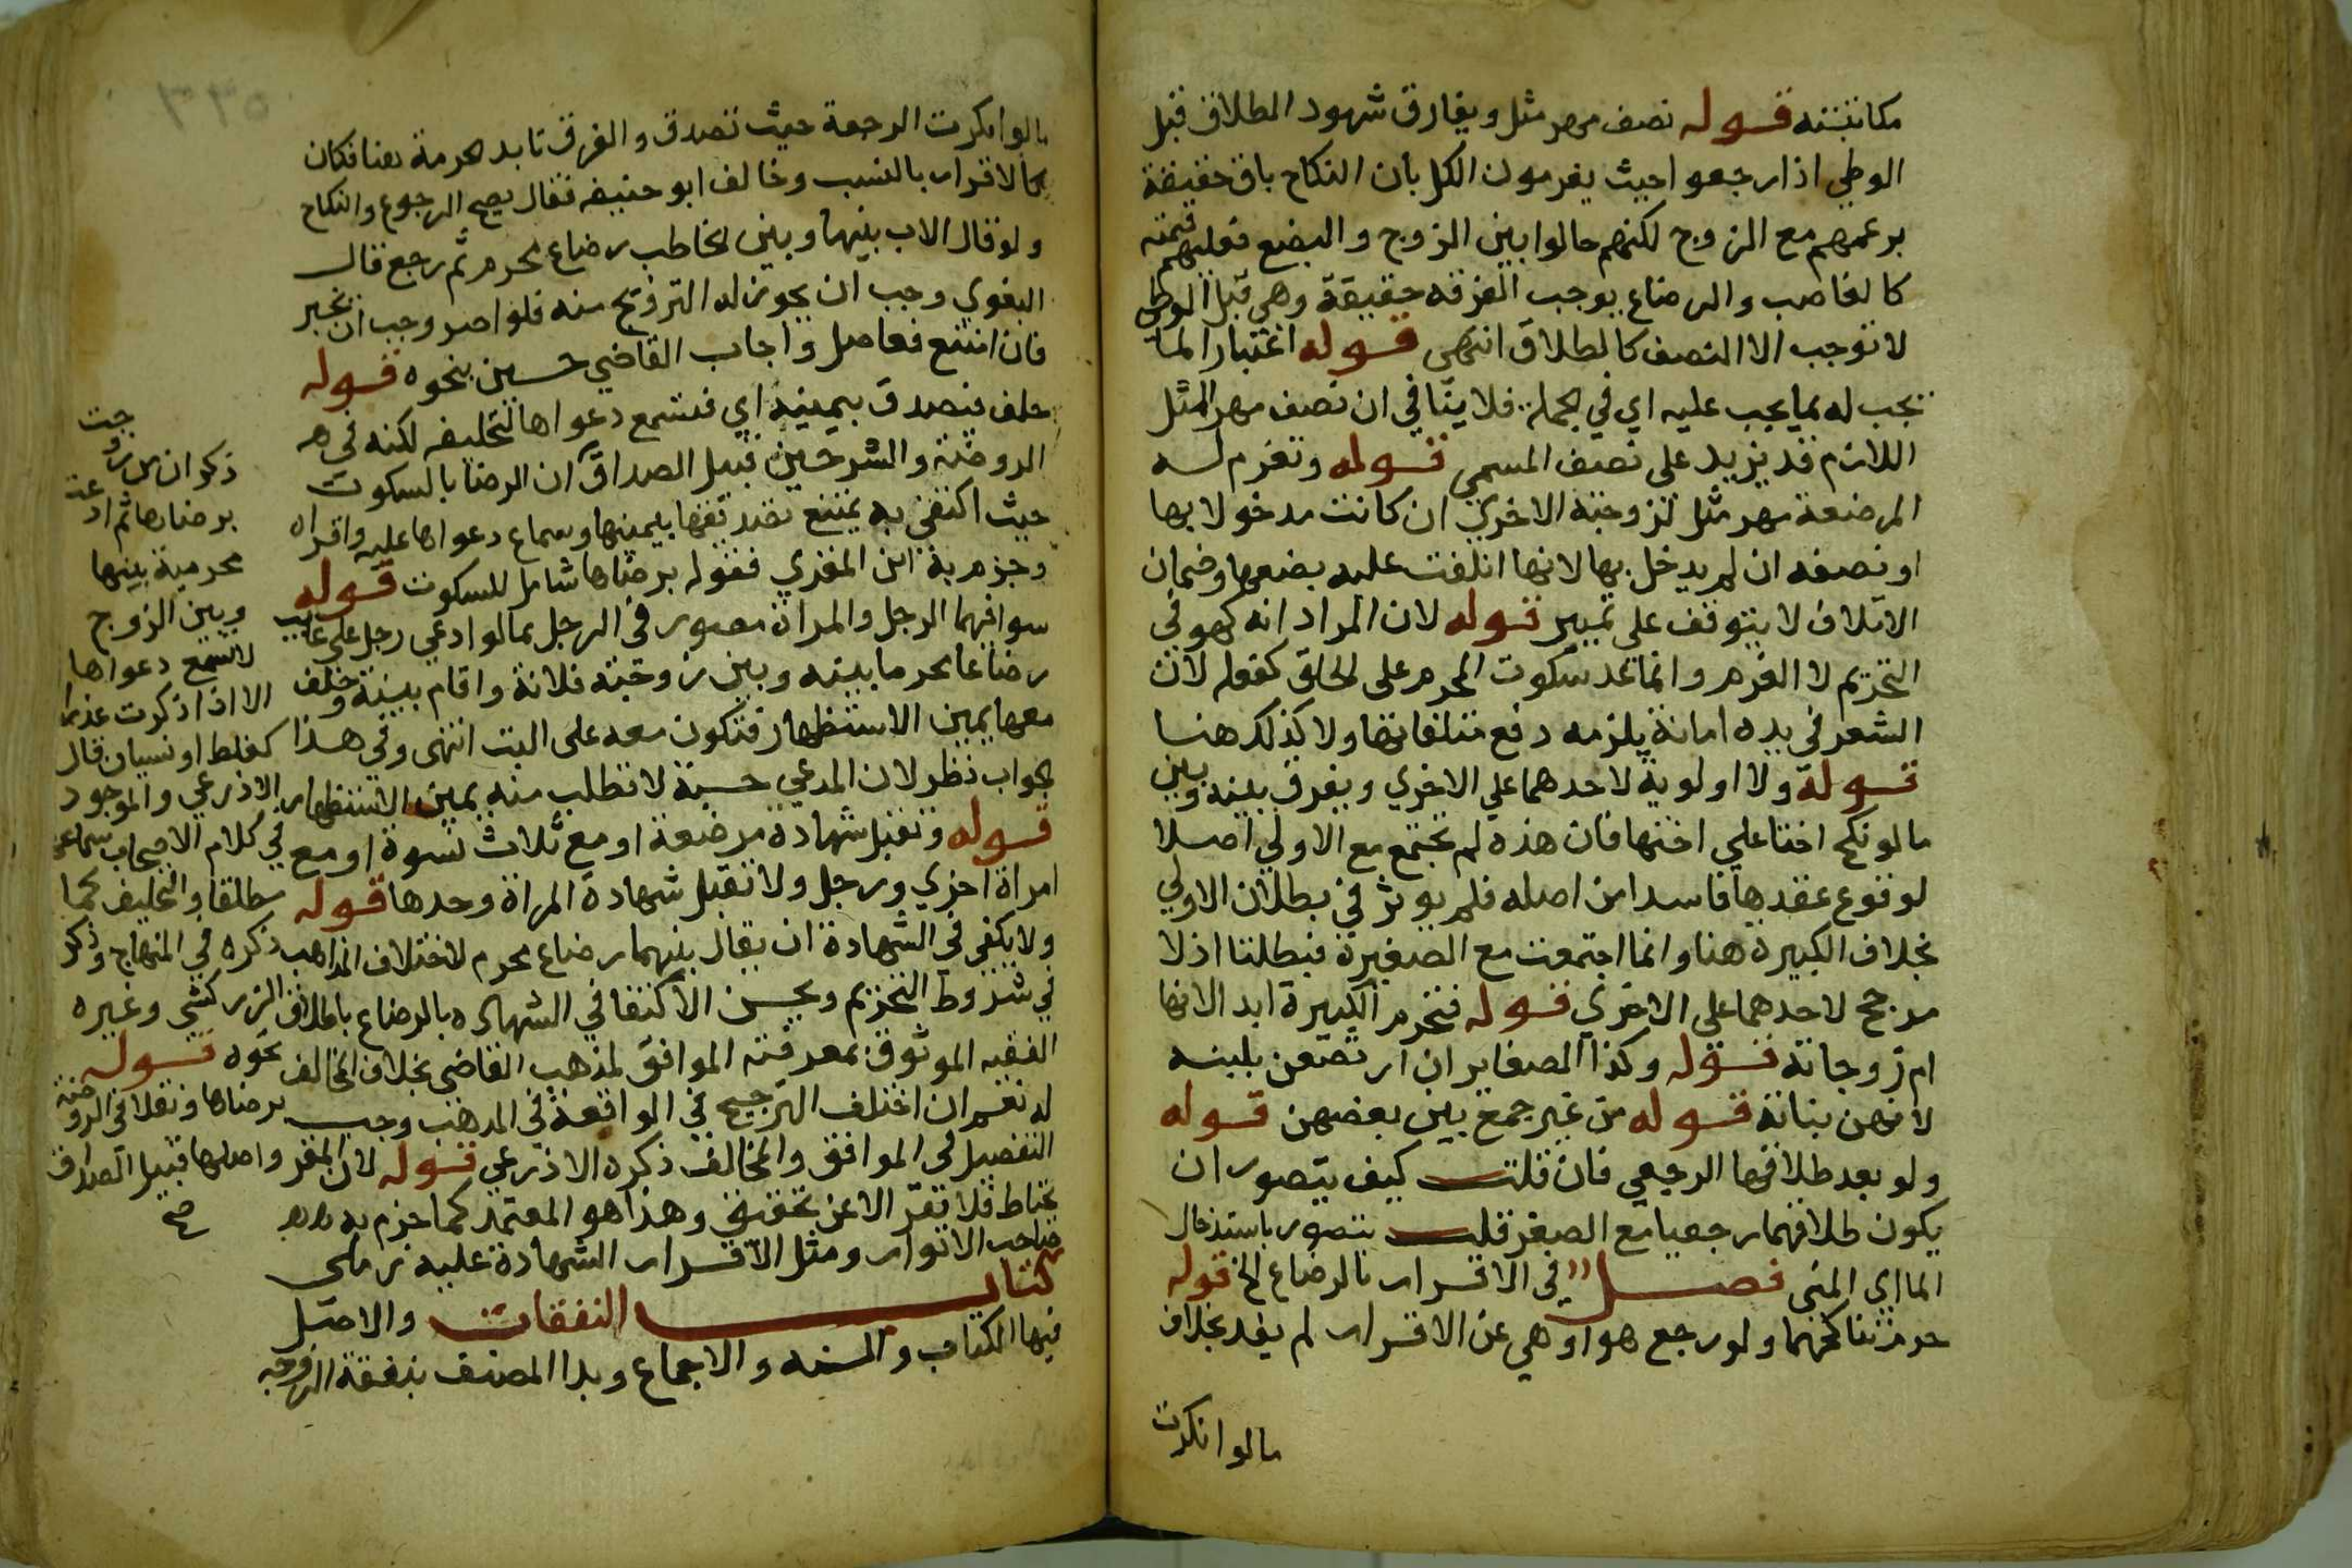 مكاتبته قوله نصف مهر مثل ويفارق شهود الطلاق قبل
الوطي اذا رجعوا حيث يغرمون الكل بأن النكاح باق حقيقة
بزعمهم مع الزوج لكنهم حالوا بين الزوج والبضع فعليهم قيمته
كالغاصب والرضاع يوجب الفرقه حقيقة وهي قبل الوطي
لا توجب الا النصف كالطلاق انتهى قوله اعتبارا لما
يجب له بما يجب عليه اي في الجملة فلا ينافي ان نصف مهر المثل
اللازم قد يزيد على نصف المسمى قوله وتغرم له
المرضعة مهر مثل لزوجته الاخرى ان كانت مدخولا بها
او نصفه ان لم يدخل بها لانها اتلفت عليه بضعها وضمان
الاتلاف لا يتوقف على تمييز قوله لان المراد انه كهو في
التحريم لا الغرم وانما عد سكوت المحرم على الحلق كفعله لان
الشعر في يده امانة يلزمه دفع متلفاتها ولا كذلك هنا
قوله ولا اولوية لاحدهما على الاخرى ويفرق بينه وبين
ما لو نكح اختا على اختها فان هذه لم تجتمع مع الاولى اصلا
لوقوع عقدها فاسدا من اصله فلم يوثر في بطلان الاولى
بخلاف الكبيرة هنا وانما اجتمعت مع الصغيرة فبطلتا اذ لا
مرجح لاحدهما على الاخرى قوله فتحرم الكبيرة ابدا لانها
ام زوجاته قوله وكذا الصغاير ان ارتضعن بلبنه
لانهن بناته قوله من غير جمع بين بعضهن قوله
ولو بعد طلاقها الرجعي فان قلت كيف يتصور ان
يكون طلاقهما رجعيا مع الصغر قلت يتصور باستدخال
الماء اي المني فصل في الاقرار بالرضاع الخ قوله
حرم تناكحهما ولو رجع هو او هي عن الاقرار لم يفد بخلاف
ما لو انكرت
ما لو انكرت الرجعة حيث تصدق والفرق تابد الحرمة هنا فكان
كالاقرار بالنسب وخالف ابو حنيفه فقال يصح الرجوع والنكاح
ولو قال الاب بينها وبين الخاطب رضاع محرم ثم رجع قال
البغوي وجب ان يجوز له التزويج منه فلو اصر وجب ان يجبر
فان امتنع فعاضل واجاب القاضي حسين بنحوه قوله
حلف فتصدق بيمينه اي فتسمع دعواها لتحليفه لكنه في
الروضة والشرحين قبيل الصداق ان الرضا بالسكوت
حيث اكتفي به يمتنع تصديقها بيمينها وسماع دعواها عليه واقراه
وجزم به ابن المقري فقوله برضاها شامل للسكوت قوله
سوا فيهما الرجل والمراة مصور في الرجل بما لو ادعى رجل على غايب
رضاعا محرما بينه وبين زوجته فلانة واقام بينة وحلف
معها يمين الاستظهار فتكون معه على البت انتهى وفي هذا
الجواب نظر لان المدعي حسبة لا تطلب منه يمين الاستظهار
قوله وتقبل شهادة مرضعة او مع ثلاث نسوة او مع
امراة اخرى ورجل ولا تقبل شهادة المراة وحدها قوله
ولا يكفي في الشهادة ان يقال بينهما رضاع محرم لاختلاف المذاهب
في شروط التحريم ويحسن الاكتفا في الشهاده بالرضاع باطلاق
الفقيه الموثوق بمعرفته الموافق لمذهب القاضي بخلاف المخالف
له نعم ان اختلف الترجيح في الواقعة في المذهب وجب
التفصيل في الموافق والمخالف ذكره الاذرعي قوله لان المقر
يحتاط فلا يقر الا عن تحقيق وهذا هو المعتمد كما جزم به
صاحب الانوار ومثل الاقرار الشهادة عليه زملي
كتاب النفقات والاصل
فيها الكتاب والسنه والاجماع وبدا المصنف بنفقة الزوجه
ذكر ان من زوجت
برضاها ثم ادعت
محرمية بينها
وبين الزوج
لا تسمع دعواها
الا اذا ذكرت عذرا
كغلط او نسيان قال
الاذرعي والموجود
في كلام الاصحاب سماعها
مطلقا والتحليف كما
ذكره في المنهاج وذكر
الزركشي وغيره
نحوه قوله
برضاها ونقلا في الروضة
واصلها قبيل الصداق
صح